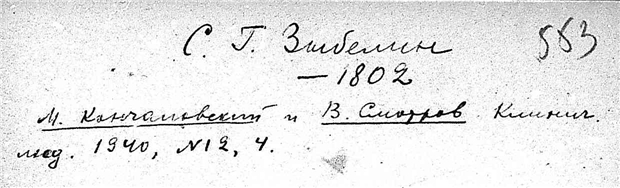 С. Г. Зыбелин 583
— 1802
М. Кончаловский и В. Смотров Клинич.
мед. 1940, №12, 4.